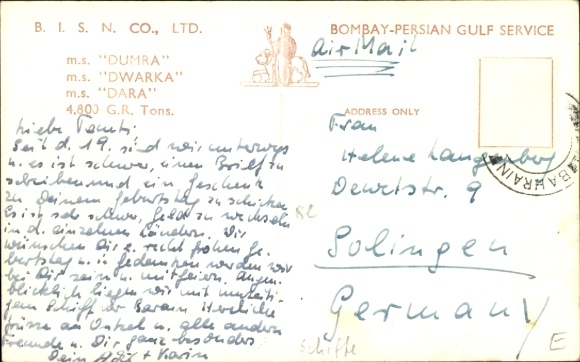 B. I. S. N. CO., LTD.
m.s. "DUMRA"
m.s. "DWARKA"
m.s. "DARA"
4,800 G.R. Tons.
BOMBAY-PERSIAN GULF SERVICE
Air Mail
ADDRESS ONLY
Liebe Tante:
Seit d. 19. sind wir unterwegs
u. es ist schwer, einen Brief zu
schreiben und ein Geschenk
zu Deinem Geburtstag zu schicken.
Es ist sehr schwer, Geld zu wechseln
in d. einzelnen Ländern. Wir
wünschen Dir e. recht frohen Ge-
burtstag u. in Gedanken werden wir
bei Dir sein u. mitfeiern. Augen-
blicklich liegen wir mit
Schiff vor Barain. Herzliche
Grüsse an Onkel u. alle anderen
Freunde u. Dir ganz besonders
Dein + Karin
82
Frau
Helene Langenberg
Dewetstr. 9
Solingen
Germany
BAHRAIN
Schiffe
E